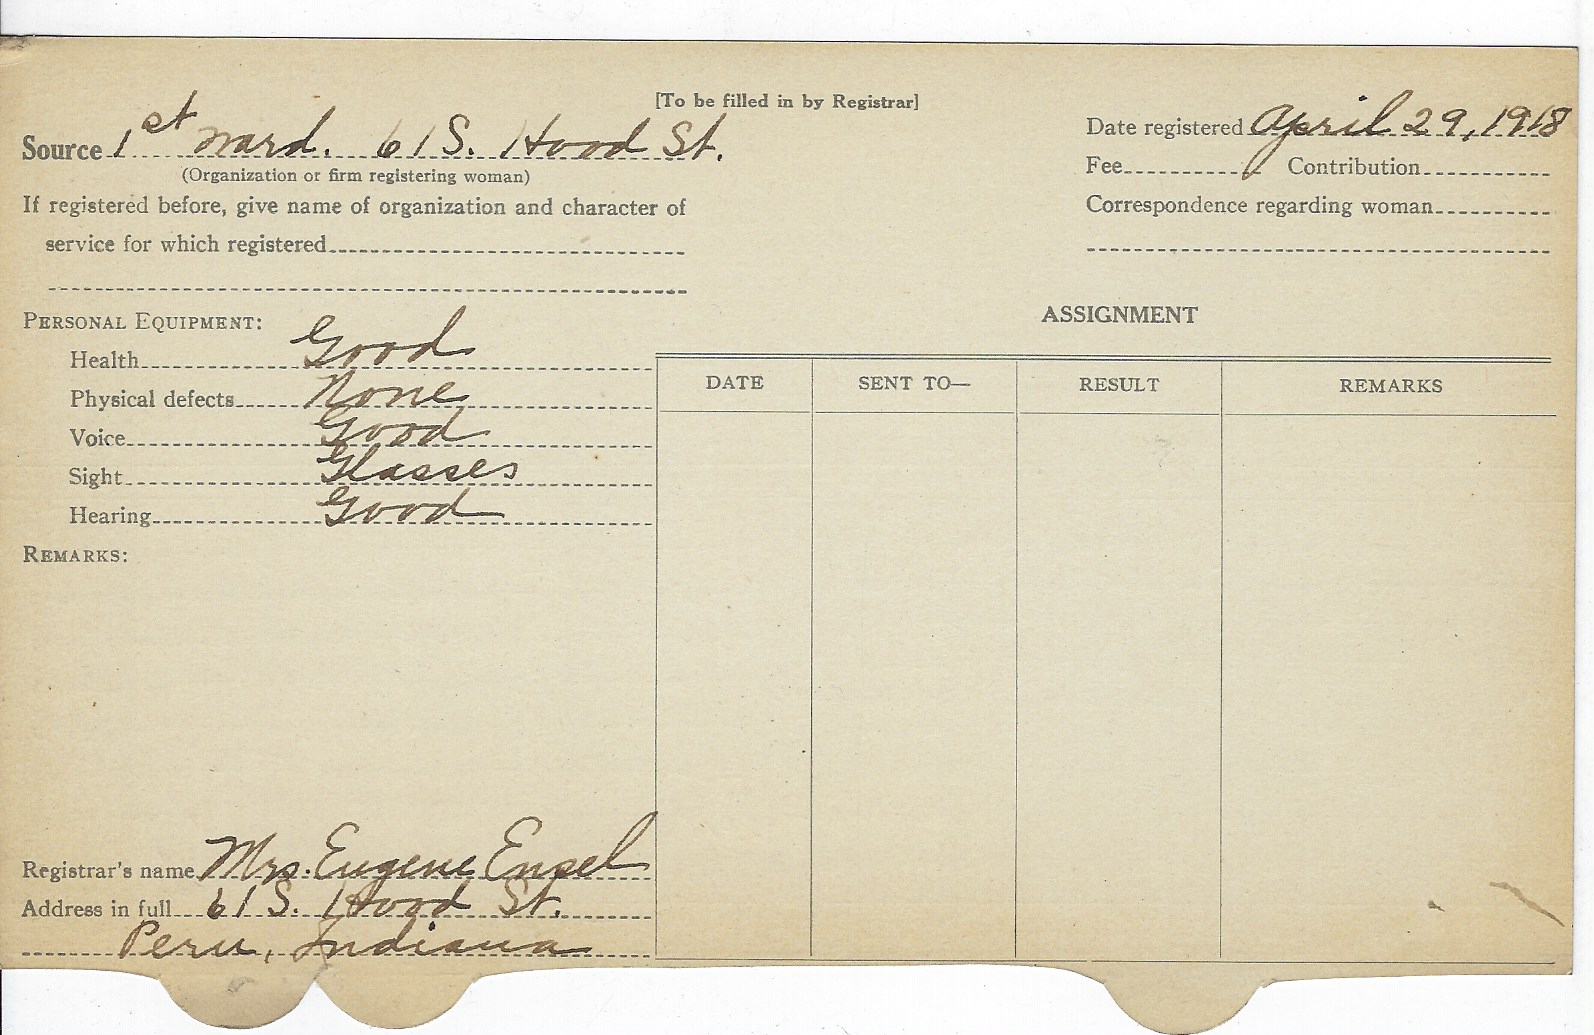 [To be filled in by Registrar]
Source 1st Ward. 61 S. Hood St.
(Organization or firm registering woman)
If registered before, give name of organization and character of
service for which registered
Date registered April 29, 1918
Fee Contribution
Correspondence regarding woman
PERSONAL EQUIPMENT:
Health Good
Physical defects None
Voice Good
Sight Glasses
Hearing Good
REMARKS:
ASSIGNMENT
DATE SENT TO— RESULT REMARKS
Registrar's name Mrs. Eugene Ensel
Address in full 61 S. Hood St.
Peru, Indiana